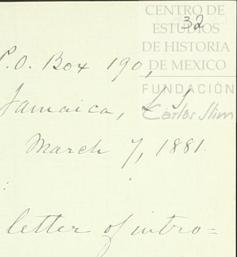 CENTRO DE
32
ESTUDIOS
DE HISTORIA
P.O. Box 190,
DE MEXICO
FUNDACIÓN
Jamaica, L. I.
Carlos Slim
March 7, 1881.
letter of intro=